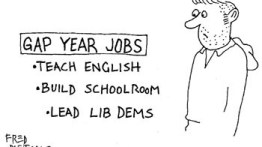 GAP YEAR JOBS
•TEACH ENGLISH
•BUILD SCHOOLROOM
•LEAD LIB DEMS
FRED